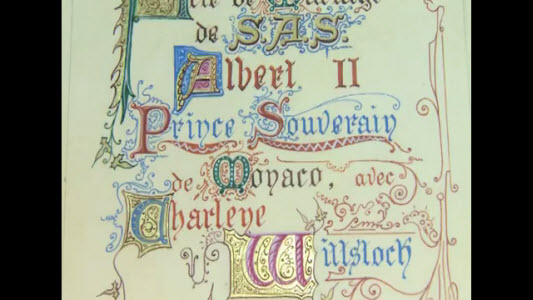 Acte de Mariage
de S.A.S.
Albert II
Prince Souverain
de Monaco, avec
Charlene
Wittstock